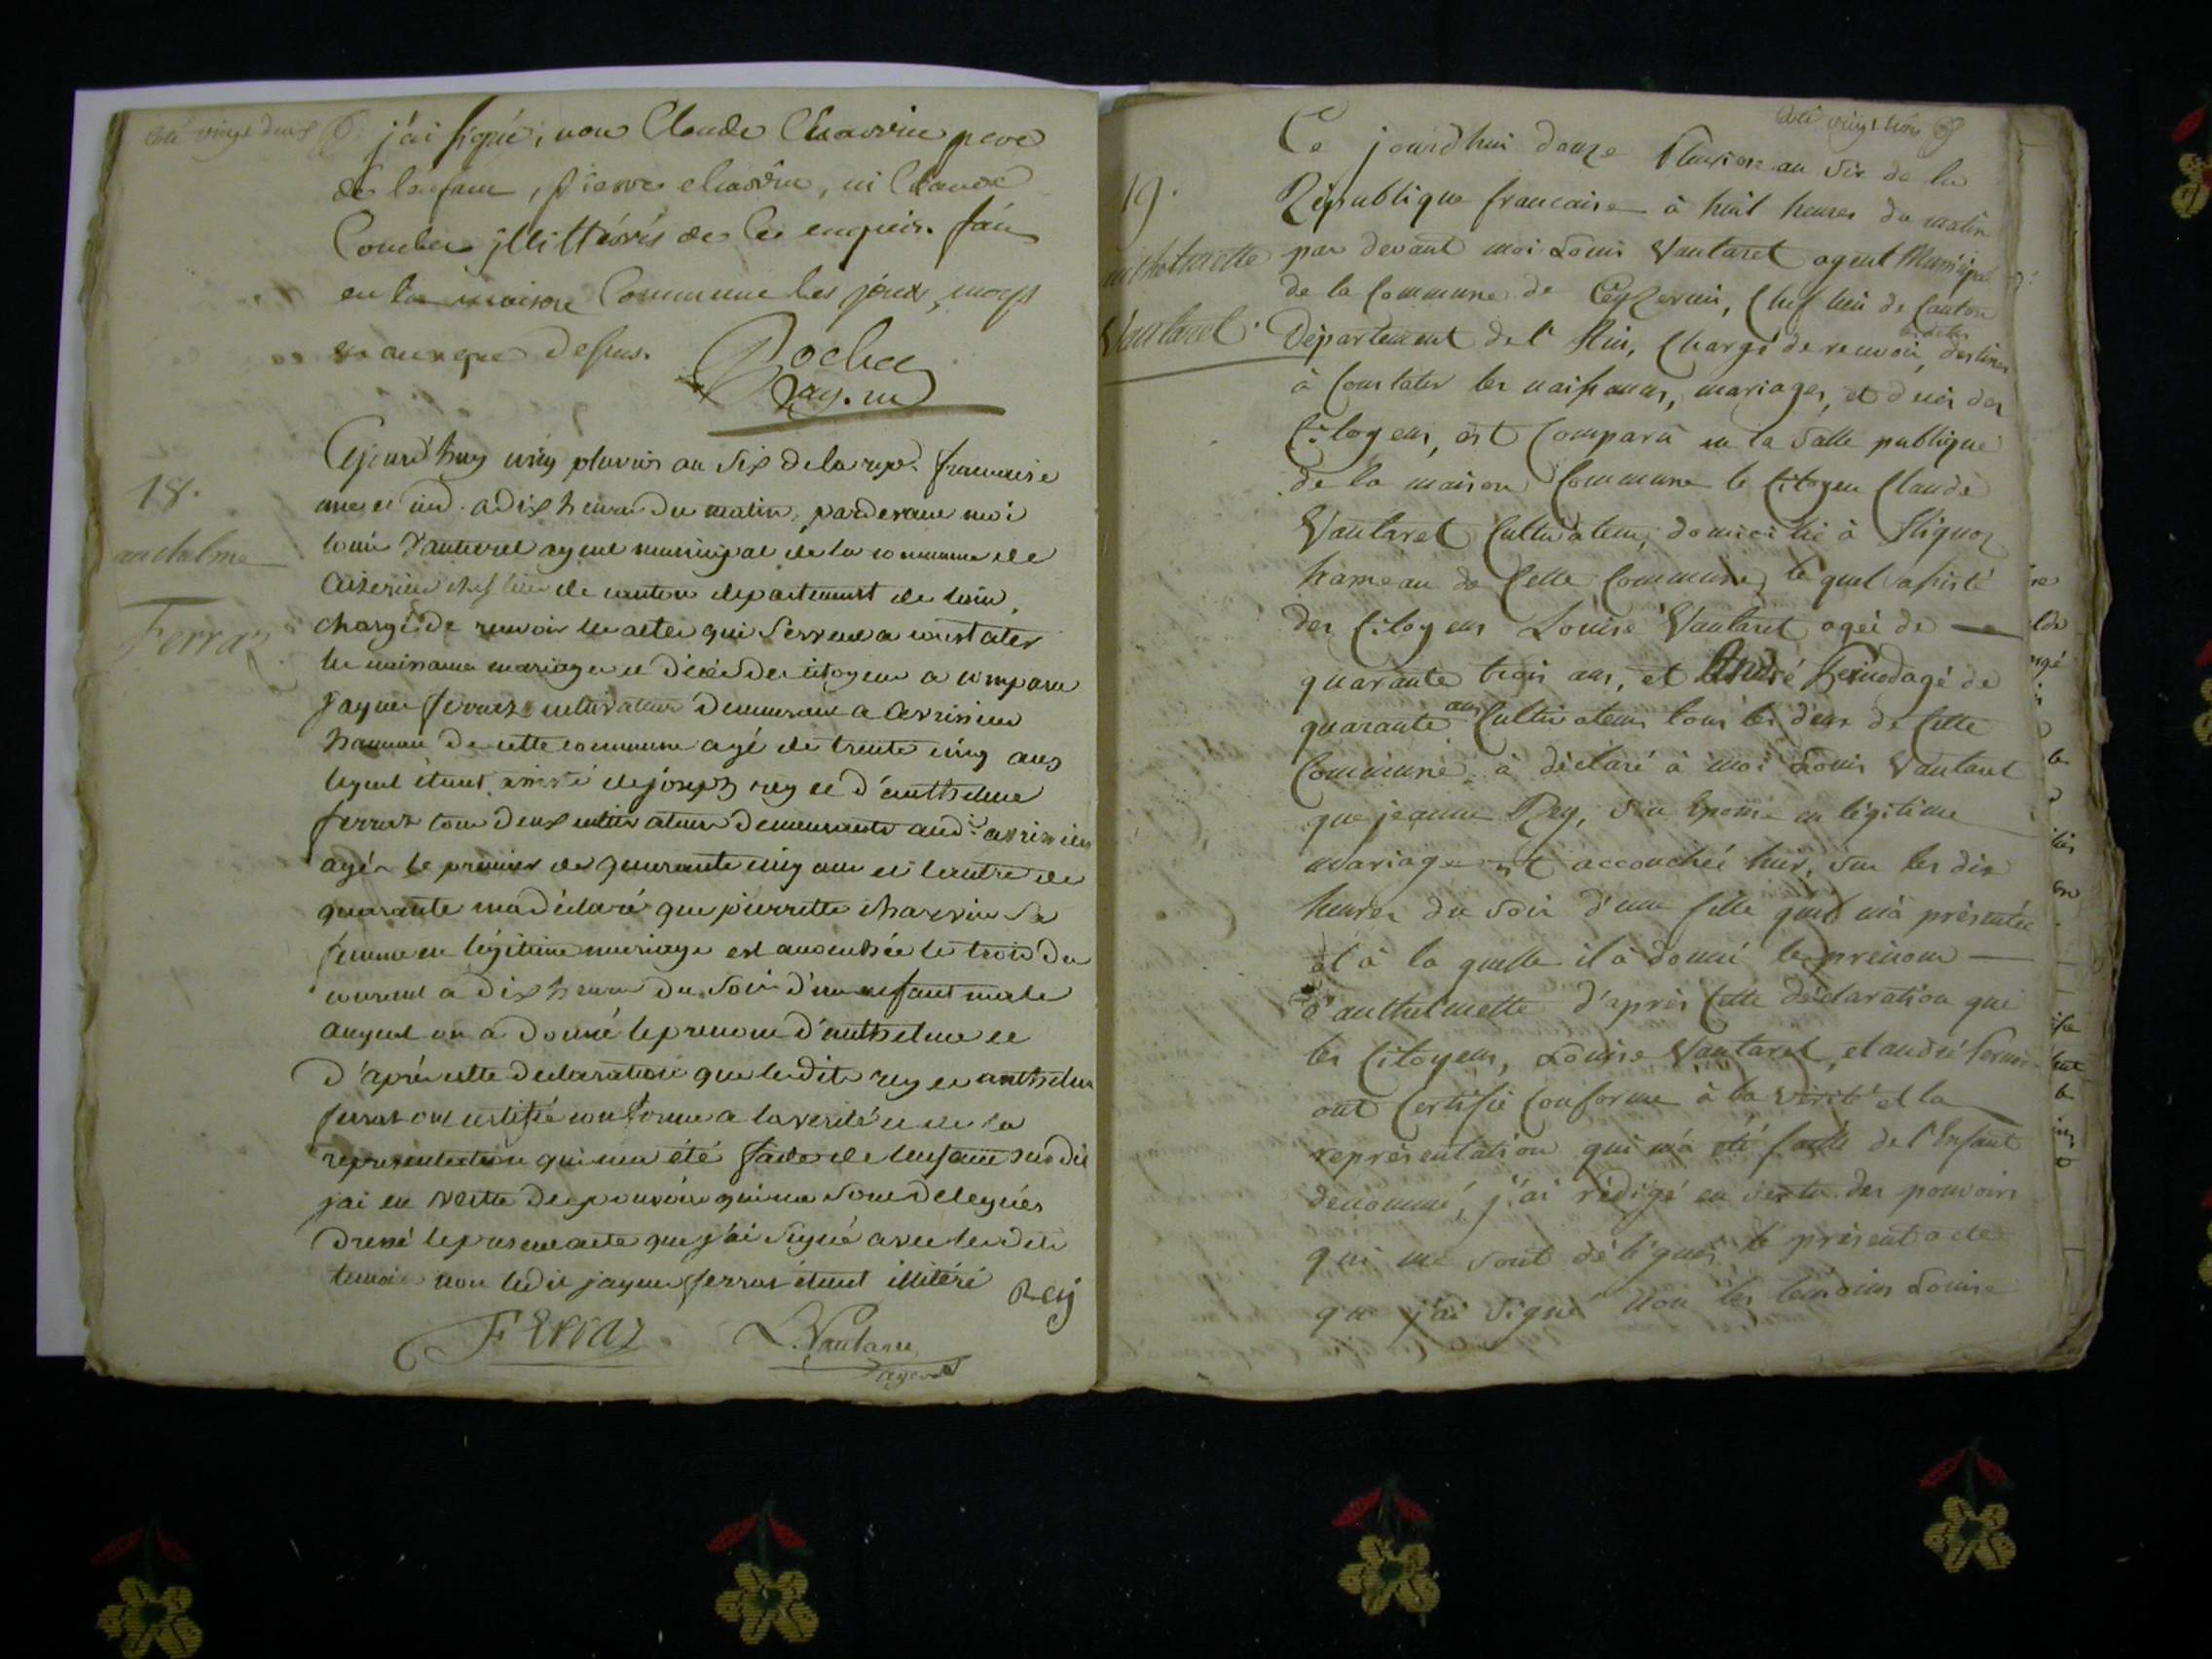 Coté vingt deux
j'ai signé, non Claude Charvin pere
de l'enfant, pierre charvin, ni Claude
Combe illittérés de ce enquis. fait
en la maison Commune les jour, mois
et an que dessus.
Rochex
ag. m
18.
anthelme
Ferraz
Cejourd'huy cinq pluviose an Six de la rep. francaise
une et ind. a dix heures du matin, pardevant moi
Louis Vautaret agent municipal de la commune de
Ceizerieu chef lieu de canton departement de lain,
chargé de recevoir les actes qui Servent a constater
les naissance mariages et décès des citoyens a comparu
jaques ferraz cultivateur demeurant a avrissieu
hameau de cette commune agé de trente cinq ans
lequel étant assisté de joseph rey et d'anthelme
ferraz tous deux cultivateurs demeurants aud. avrissieu
agés le premier de quarante cinq ans et lautre de
quarante ma déclaré que pierrette charvin sa
femme en légitime mariage est accouchée le trois du
courant a dix heures du Soir d'un enfant male
auquel on a donné le prenom d'anthelme et
d'après cette declaration que lesdits rey et anthelme
ferraz ont certifié conforme a la verité et de la
représentation qui ma été faite de lenfant susdit
jai en vertu des pouvoirs qui me sont delegués
dressé le present acte que j'ai signé avec lesdits
temoins non ledit jaques ferraz étant illitéré
Rey
FErraz L. Vautaret
agent
Coté vingt trois
19.
anthelmette
Vautaret.
Ce jourd'hui douze Pluviose an Six de la
République francaise à huit heures du matin
par devant moi Louis Vautaret agent Municipal
de la Commune de Ceyzerieu, Chef lieu de Canton
Département de l'Ain, Chargé de recevoir les actes destinés
à Constater les naissances, mariages, et décés des
Citoyens, est Comparu en la Salle publique
de la maison Commune le Citoyen Claude
Vautaret Cultivateur, domicilié à Aignoz
hameau de Cette Commune, lequel assisté
des Citoyens Louise Vautaret agée de
quarante trois ans, et André agé de
quarante ans Cultivateurs tous les deux de Cette
Commune, à déclaré à moi Louis Vautaret
que jeanne Rey, son Epouse en légitime
mariage est accouchée hier, sur les dix
heures du soir d'une fille qu'il m'a présentée
et à la quelle il à donné le prénom
d'anthelmette d'après Cette déclaration que
les Citoyens, Louise Vautaret, et andré
ont Certifié Conforme à la vérité et la
représentation qui m'a été faite de l'Enfant
denommé, j'ai rédigé en vertu des pouvoirs
qui me sont délégués le présent acte
que j'ai signé non les temoins Louise